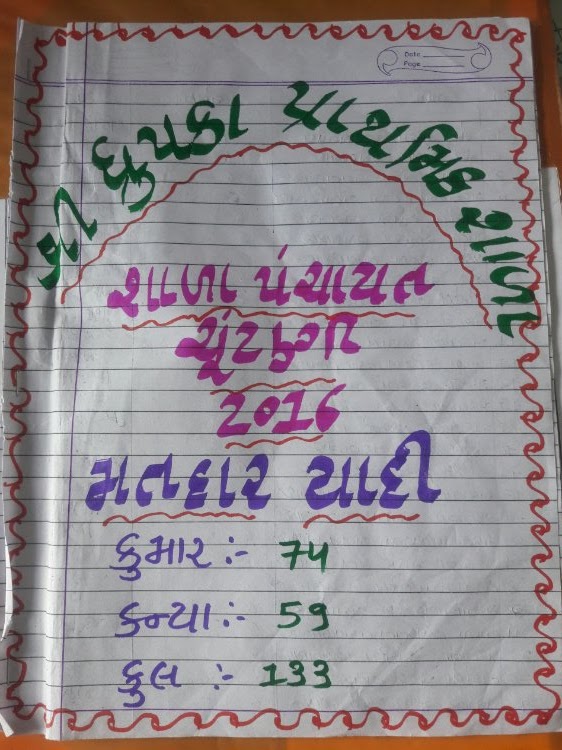 Date
Page
શ્રી પ્રાથમિક શાળા
શાળા પંચાયત
ચૂંટણી
2016
મતદાર યાદી
કુમાર :- 74
કન્યા :- 59
કુલ :- 133